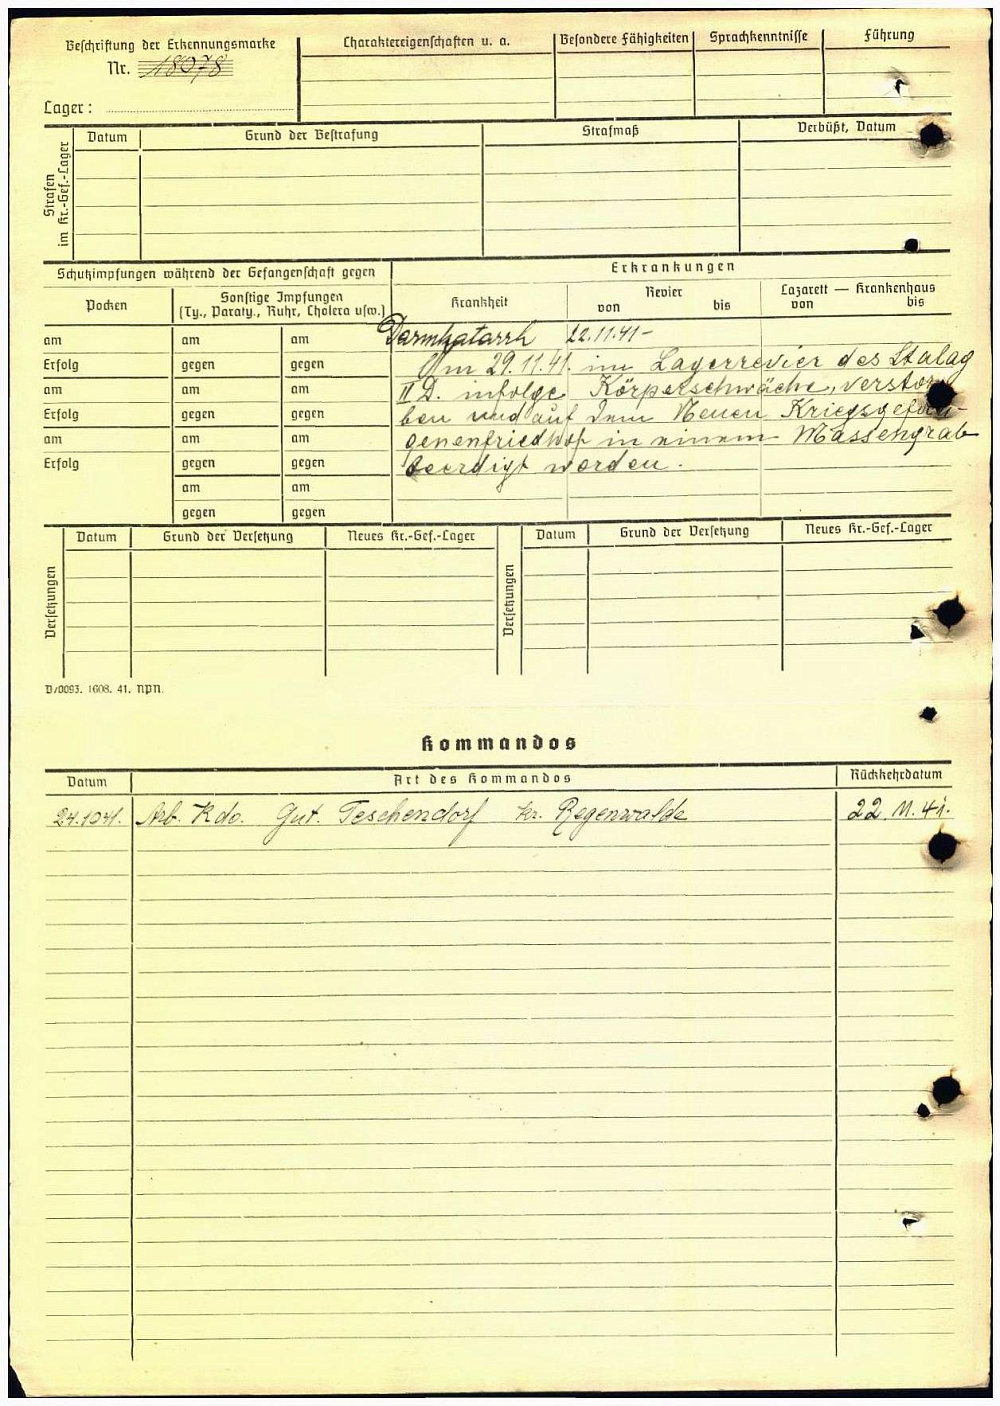 Beschriftung der Erkennungsmarke
Nr. 18078
Lager:
Charaktereigenschaften u. a.
Besondere Fähigkeiten
Sprachkenntnisse
Führung
Strafen im Kr.-Gef.-Lager
Datum
Grund der Bestrafung
Strafmaß
Verbüßt, Datum
Schutzimpfungen während der Gefangenschaft gegen
Erkrankungen
Pocken
Sonstige Impfungen
(Ty., Paraty., Ruhr, Cholera usw.)
Krankheit
Revier
von bis
Lazarett — Krankenhaus
von bis
am am am
Erfolg gegen gegen
am am am
Erfolg gegen gegen
am am am
Erfolg gegen gegen
am am
gegen gegen
Darmkatarrh 22.11.41-
Am 29.11.41. im Lagerrevier des Stalag
II D. infolge Körperschwäche, verstor-
ben und auf dem Neuen Kriegsgefan-
genenfriedhof in einem Massengrab
beerdigt worden.
Versetzungen
Datum
Grund der Versetzung
Neues Kr.-Gef.-Lager
Versetzungen
Datum
Grund der Versetzung
Neues Kr.-Gef.-Lager
D/0093. 1608. 41. NPN.
Kommandos
Datum
Art des Kommandos
Rückkehrdatum
24.10.41. Arb. Kdo. Gut. Teschendorf Kr. Regenwalde 22.11.41.